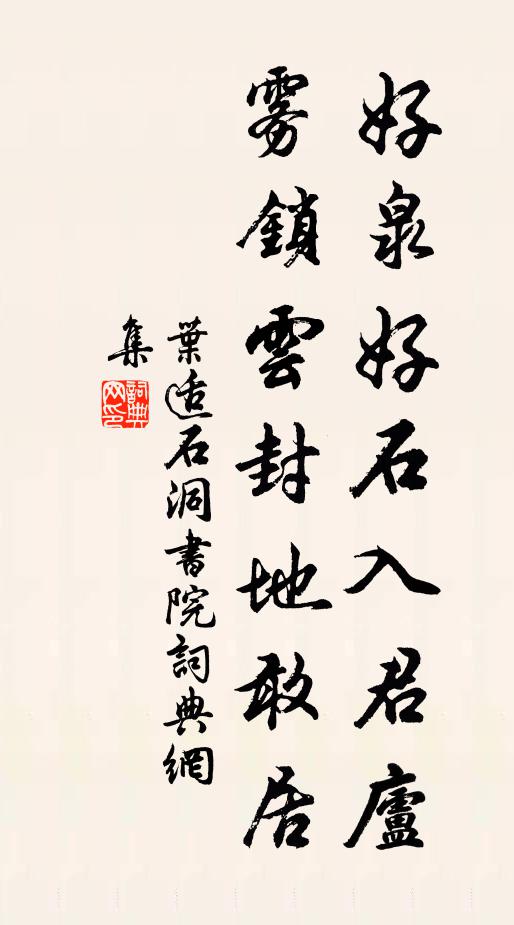 好泉好石入君廬
雾鎖雲封地敢居
葉适石洞書院詞典網
集
詞典网印